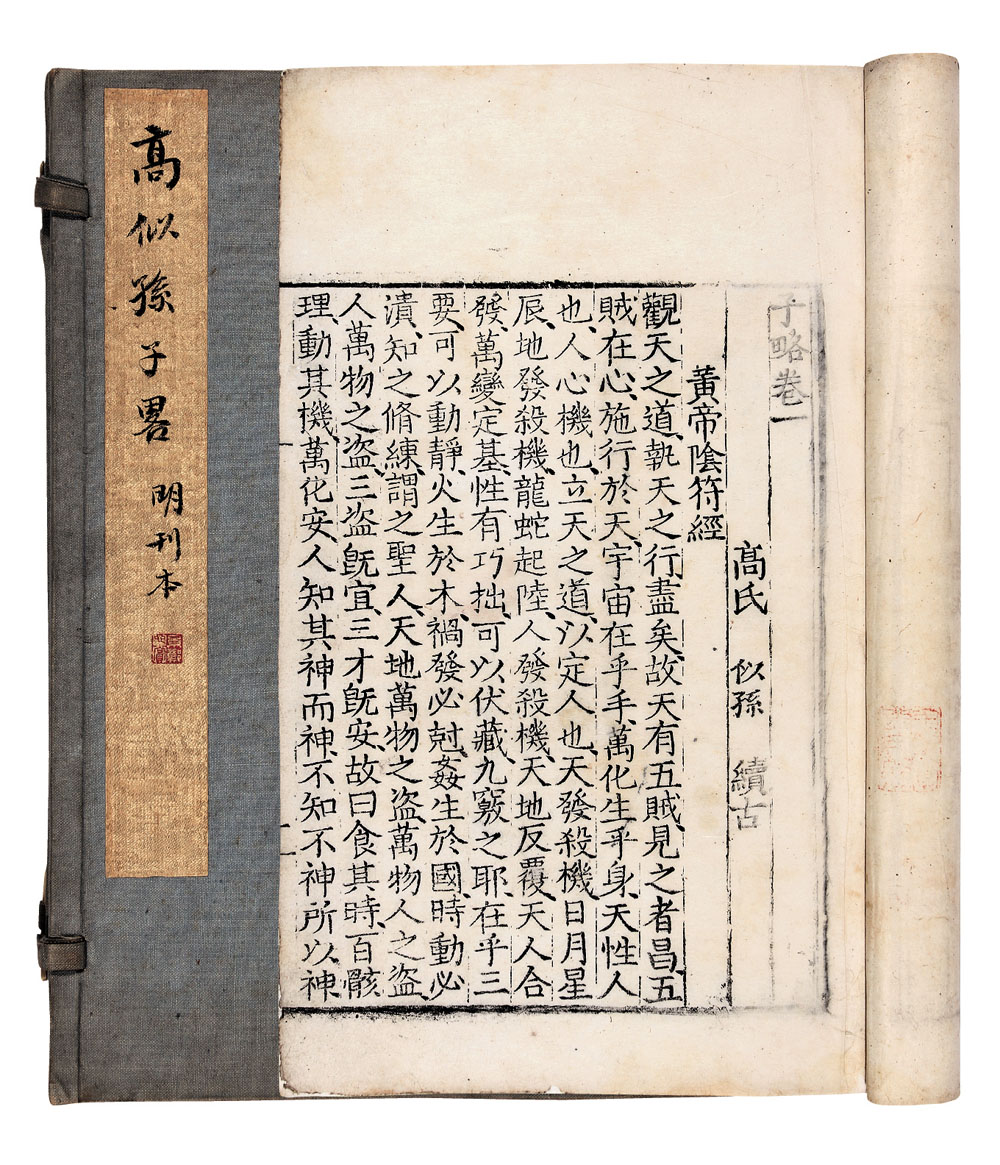 子略卷一
髙氏 似孫 續古
黃帝隂符經
觀天之道執天之行盡矣故天有五賊見之者昌五
賊在心施行於天宇宙在乎手萬化生乎身天性人
也人心機也立天之道以定人也天發殺機日月星
辰地發殺機龍蛇起陸人發殺機天地反覆天人合
發萬變定基性有巧拙可以伏藏九竅之耶在乎三
要可以動靜火生於木禍發必尅姦生於國時動必
潰知之脩練謂之聖人天地萬物之盜萬物人之盜
人萬物之盜三盜旣宜三才旣安故曰食其時百骸
理動其機萬化安人知其神而神不知不神所以神
髙似孫子畧 明刊本